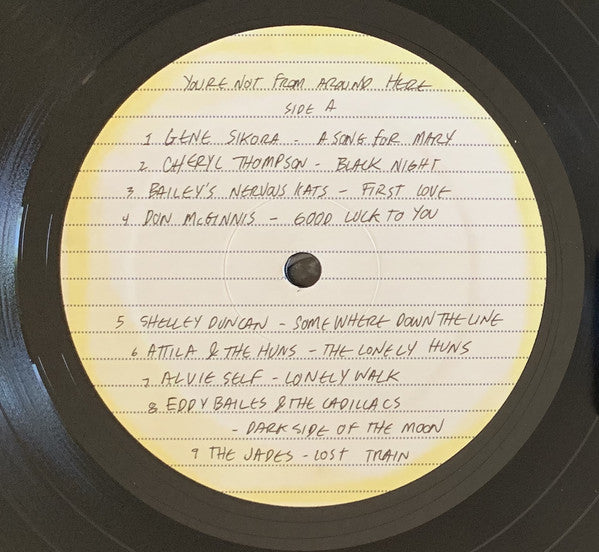 YOU'RE NOT FROM AROUND HERE
SIDE A
1 GENE SIKORA - A SONG FOR MARY
2. CHERYL THOMPSON - BLACK NIGHT
3 BAILEY'S NERVOUS KATS - FIRST LOVE
4 DON McGINNIS - GOOD LUCK TO YOU
5 SHELLEY DUNCAN - SOMEWHERE DOWN THE LINE
6 ATTILA & THE HUNS - THE LONELY HUNS
7 ALVIE SELF - LONELY WALK
8 EDDY BAILES & THE CADILLACS
- DARK SIDE OF THE MOON
9 THE JADES - LOST TRAIN